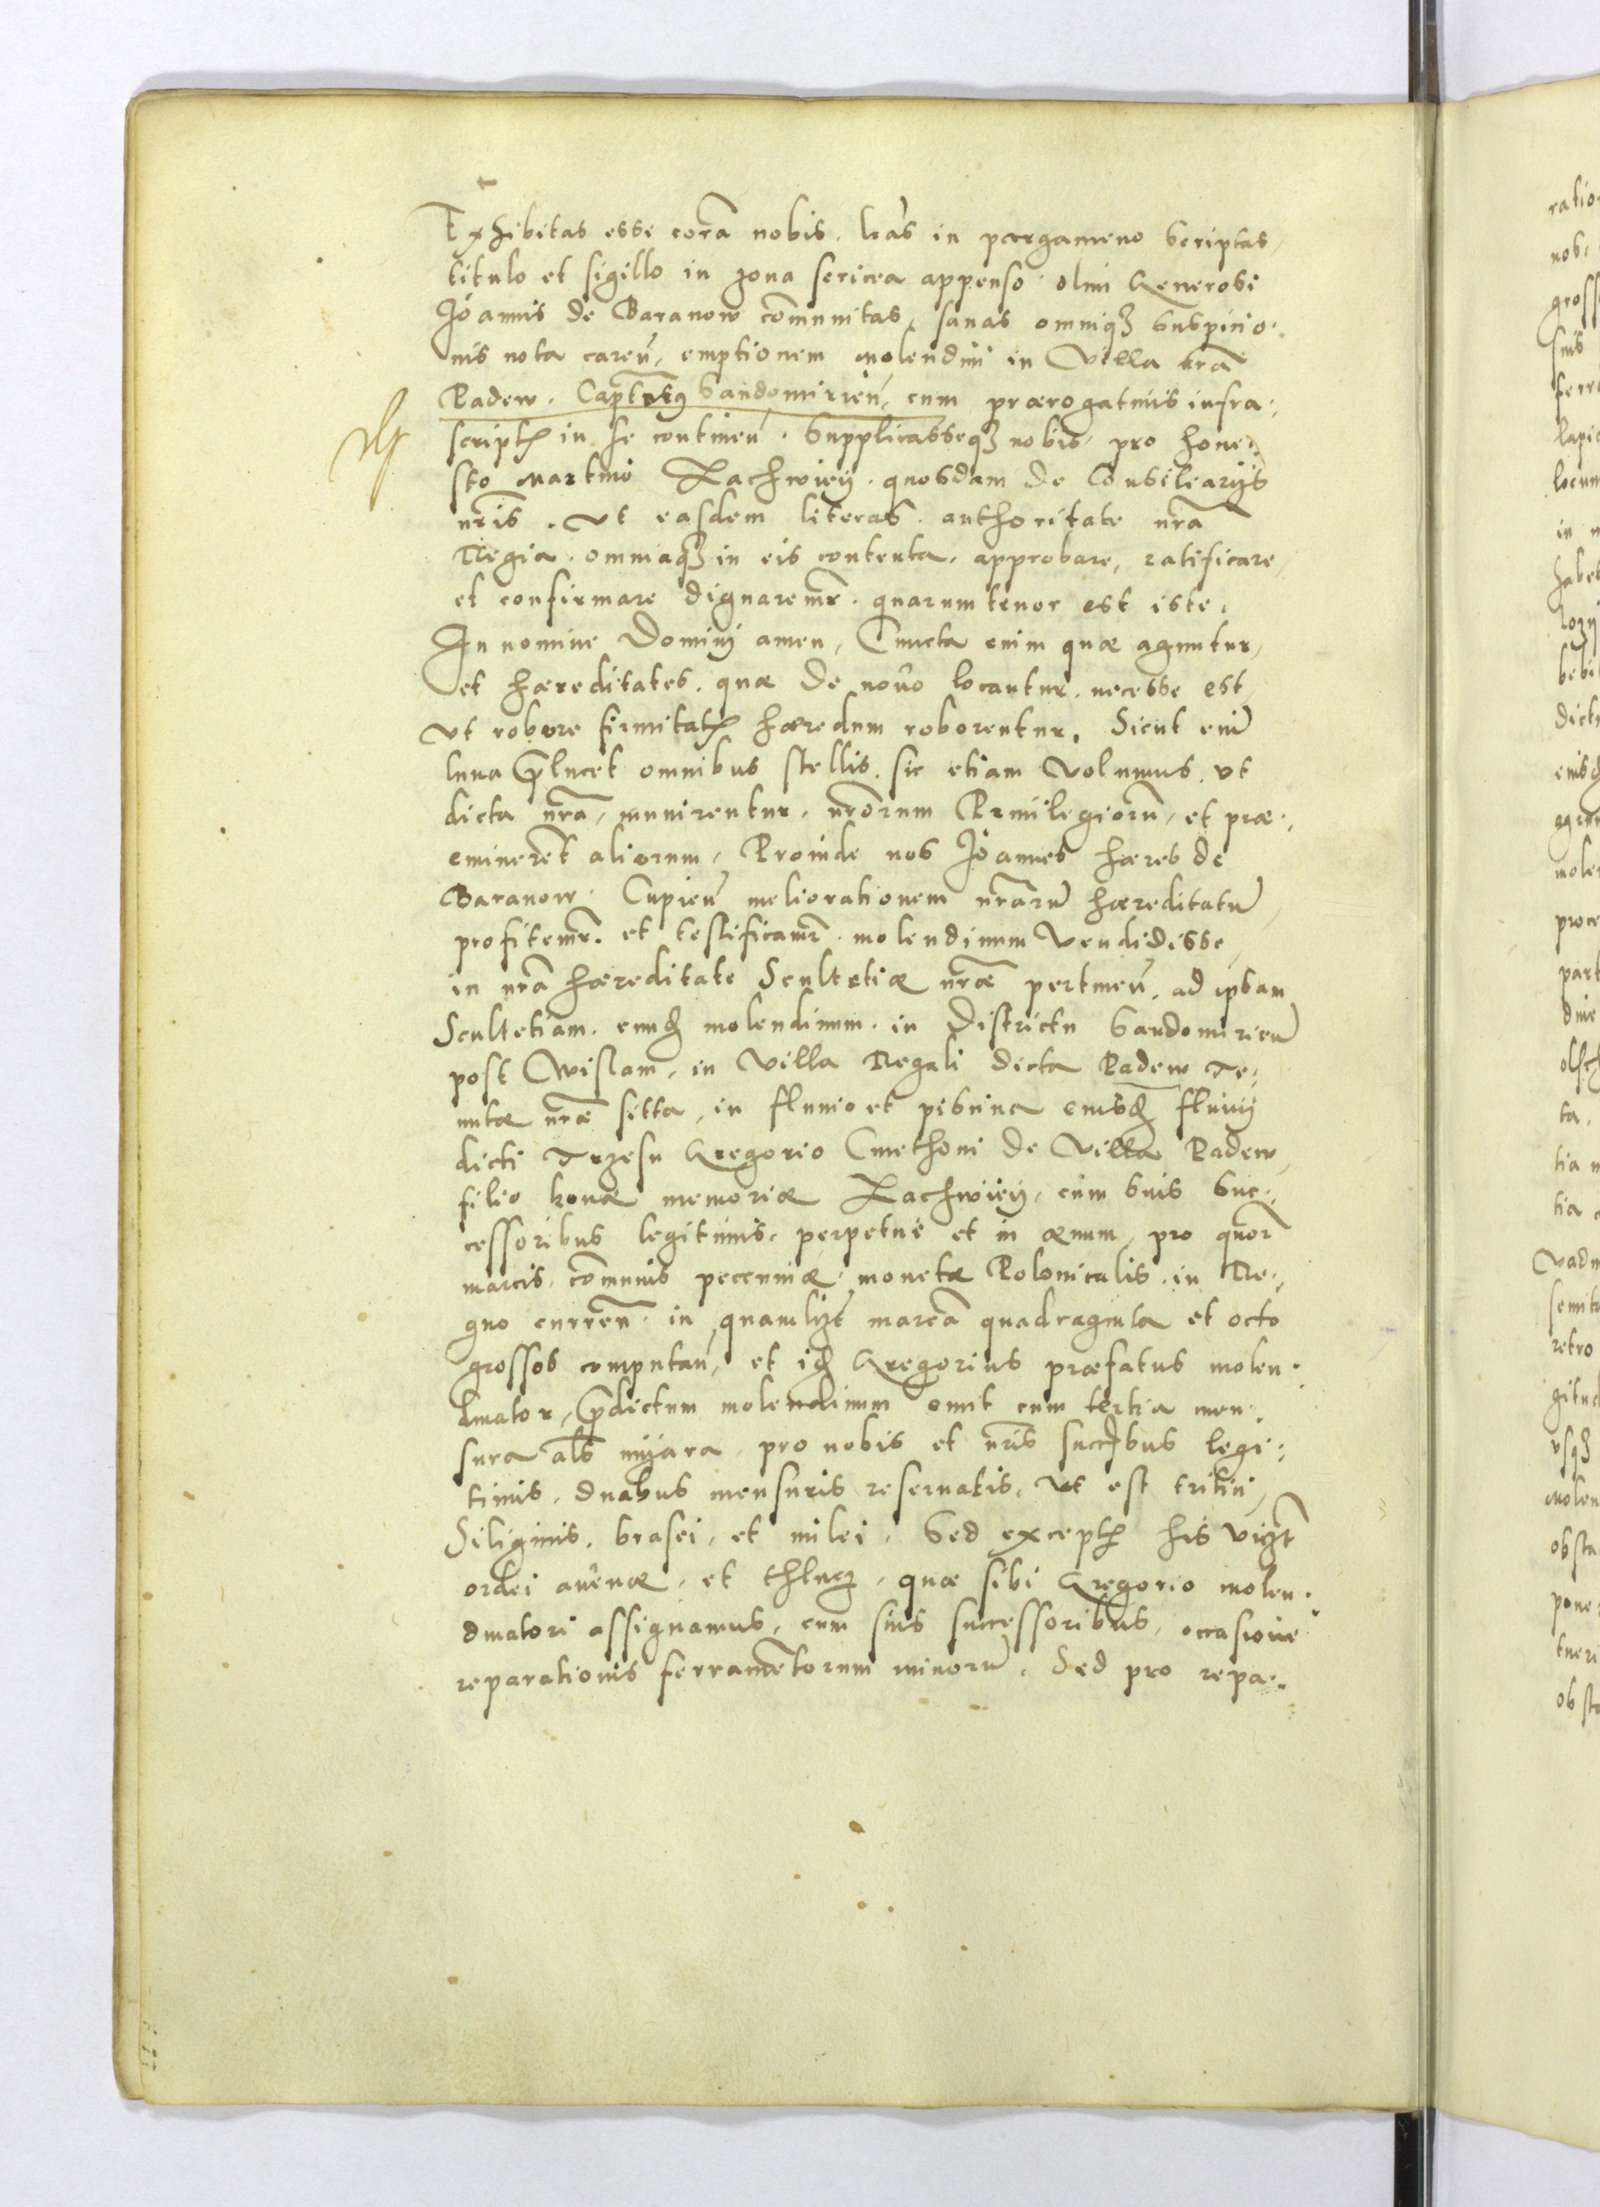 Exhibitas esse corā nobis, lrās in pargameno scriptas,
titulo et sigillo in zona sericea appenso olim Generosi
Joannis de Baranow com̄unitas, sanas omniqꝫ suspicio-
nis nota careñ, emptionem molendini in Villa nrā
Padew. Captꝰ Sandomirieñ, cum prærogatiuis infra-
scriptꝭ in se contineñ. Supplicasseqꝫ nobis pro hone-
sto Martino Lachwiey. quosdam de Consiliarijs
nr̄is. Vt easdem literas authoritate nrā
Regia omniaqꝫ in eis contenta. approbare, ratificare,
et confirmare dignaremr̄. quarum tenor est iste.
In nomine Dominj amen, Cuncta enim quæ aguntur,
et hæreditates, quæ de nouo locantur, necesse est
Vt robore firmitatꝭ hæredum roborentur. Sicut enim̄
luna p̄lucet omnibus stellis, sic etiam Volumus, vt
dicta nrā, munirentur, nrōrum Priuilegiorū, et præ-
eminerēt aliorum, Proinde nos Joannes hæres de
Baranow. Cupieñ meliorationem nrārū hæreditatū
profitemr̄. et testificamr̄. molendinum Vendidisse
in nrā hæreditate Scultetiæ nrǣ pertineñ. ad ipsam
Scultetiam. eundꝫ molendinum. in Districtu Sandomirieñ
post Wislam, in Villa Regali dicta Padew Te-
nutæ nrǣ sitta, in fluuio et piscina eiusdꝫ fluuij
dicti Trzesn Gregorio Cmethoni de Villa Padew,
filio bonæ memoriæ Lachwiey, cum suis suc-
cessoribus legitimis, perpetue et in æuum, pro quor̄
marcis com̄unis peccuniæ. monetæ Polonicalis. in Re-
gno curreñ. in quamlibt̄ marcā quadraginta et octo
grossos computañ, et idꝫ Gregorius præfatus molen-
dinator, p̄dictum molendinum emit cum tertia men-
sura als̄ myara. pro nobis et nr̄is succꝭbus legi-
timis, duabus mensuris reseruatis, Vt est tritici,
Siliginis, brasei, et milei. Sed exceptꝭ his Vizt̄
ordei auenæ, et thlucz, quæ sibi Gregorio molen-
dinatori assignamus, cum suis successoribus, occasione
reparationis ferramētorum minorū. Sed pro repa-